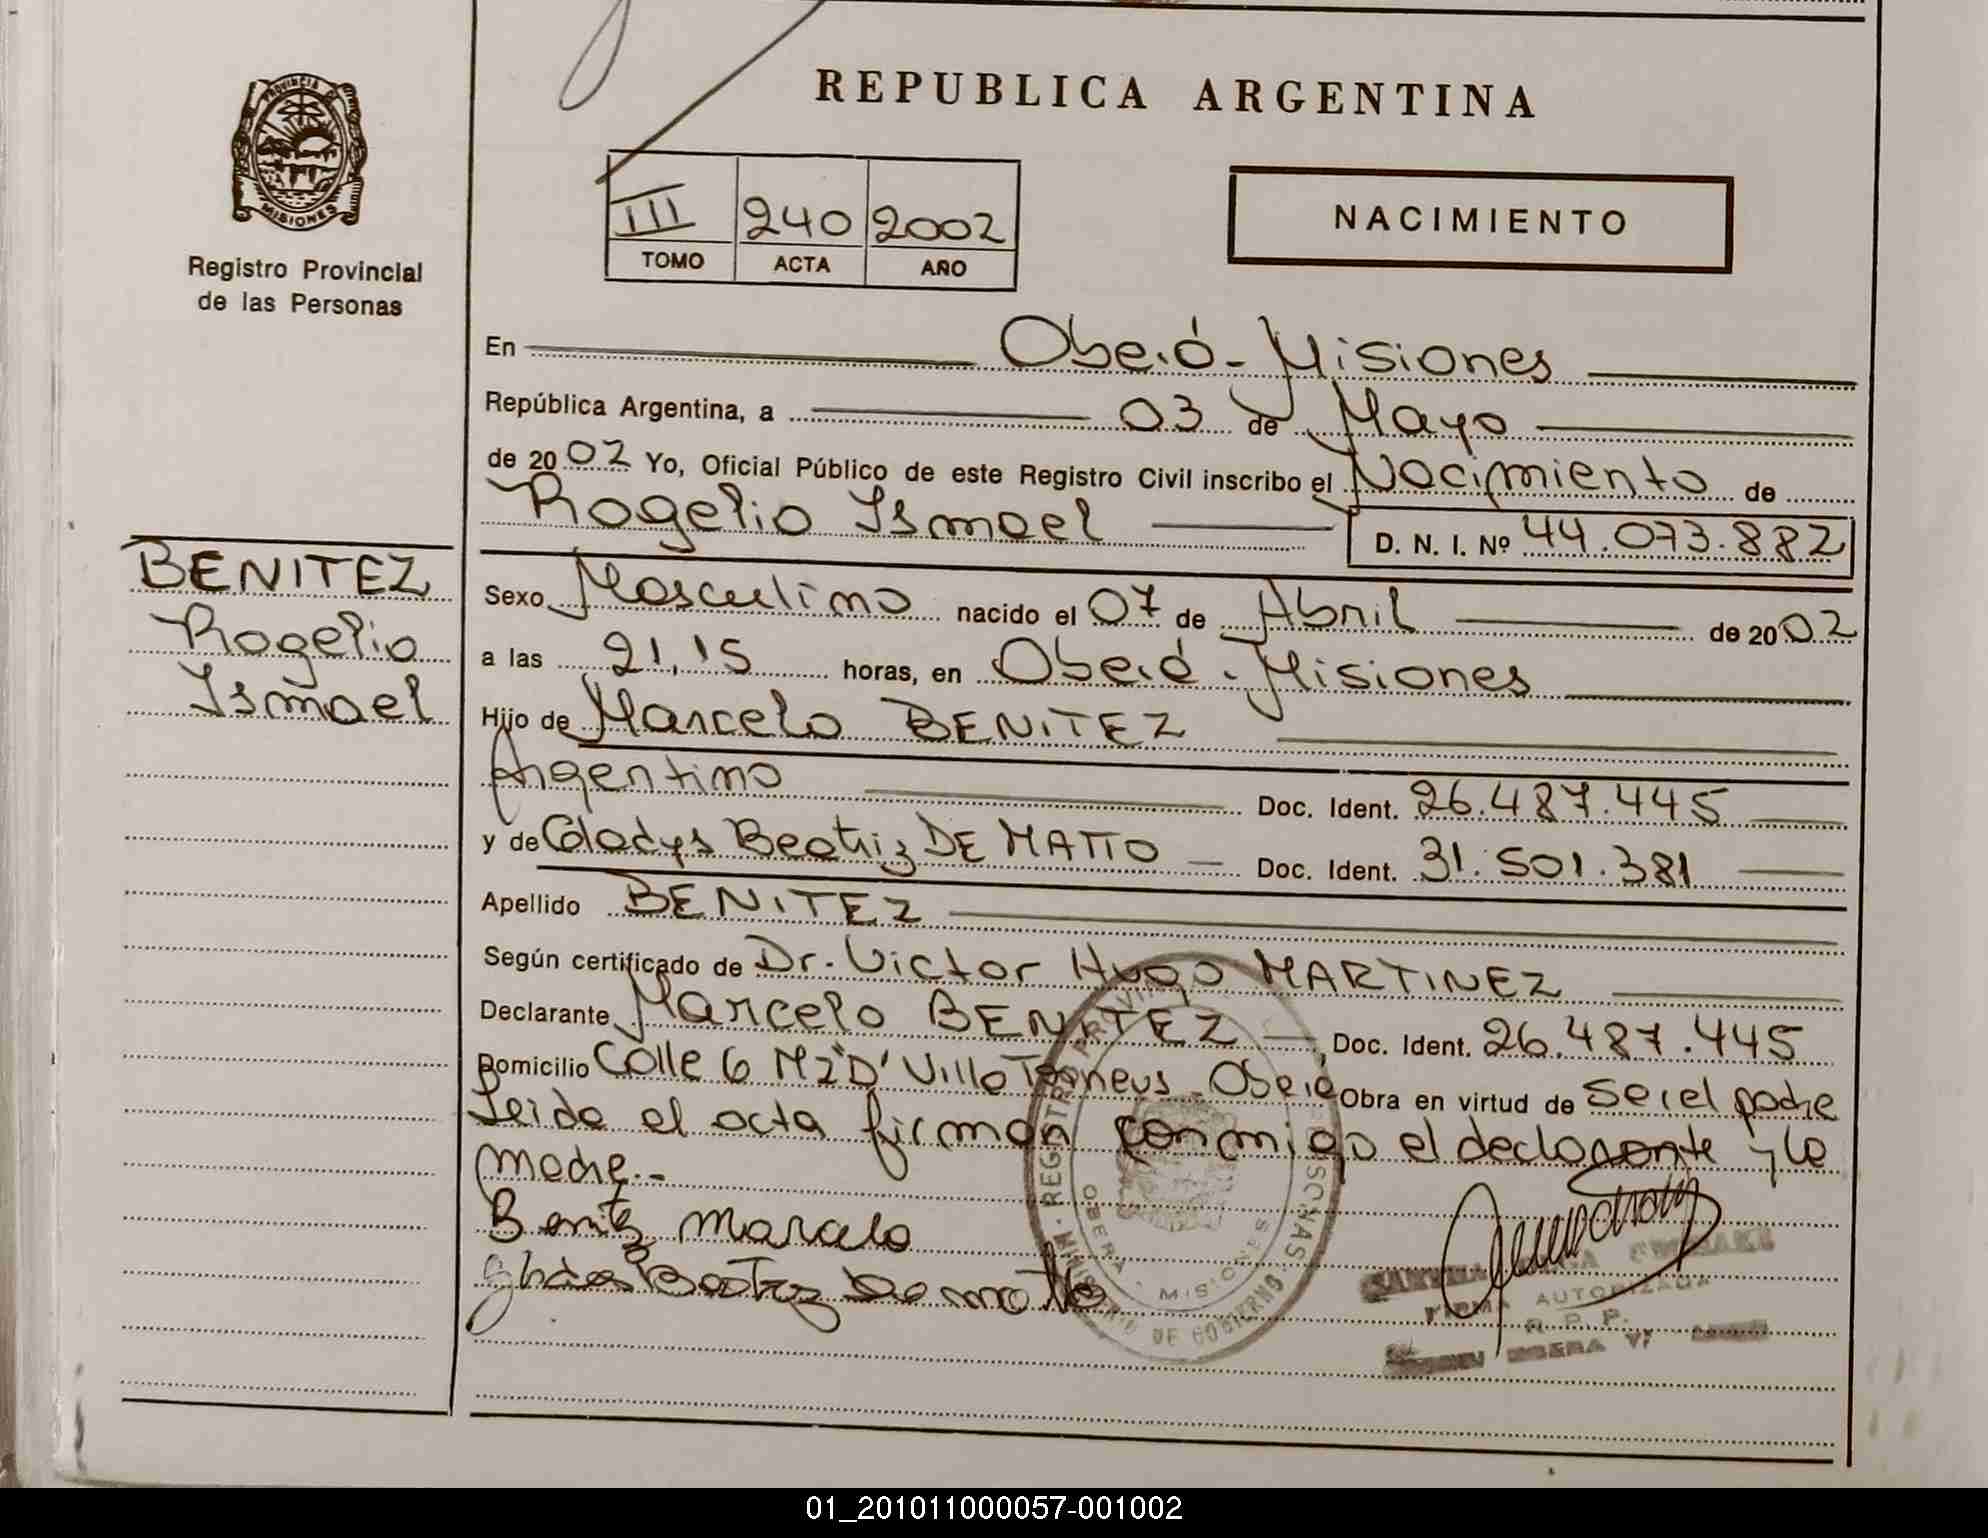 REPUBLICA ARGENTINA
PROVINCIA DE
MISIONES
Registro Provincial
de las Personas
III 240 2002
TOMO ACTA AÑO
NACIMIENTO
En Oberá - Misiones
República Argentina, a 03 de Mayo
de 2002 Yo, Oficial Público de este Registro Civil inscribo el Nacimiento de
Rogelio Ismael D. N. I. Nº 44.073.882
BENITEZ
Rogelio
Ismael
Sexo Masculino nacido el 07 de Abril de 2002
a las 21,15 horas, en Oberá - Misiones
Hijo de Marcelo BENITEZ
Argentino Doc. Ident. 26.487.445
y de Gladys Beatriz DE MATTO Doc. Ident. 31.501.381
Apellido BENITEZ
Según certificado de Dr. Victor Hugo MARTINEZ
Declarante Marcelo BENITEZ, Doc. Ident. 26.487.445
Domicilio Calle 6 Mz "D" Villa Oberá Obra en virtud de ser el padre
Leida el acta firman conmigo el declarante y la
madre.-
Benitez Marcelo
Beatriz De matto
OBERA MISIONES
DE GOBIERNO
FIRMA AUTORIZADA
R. P. P.
OBERA
01_201011000057-001002